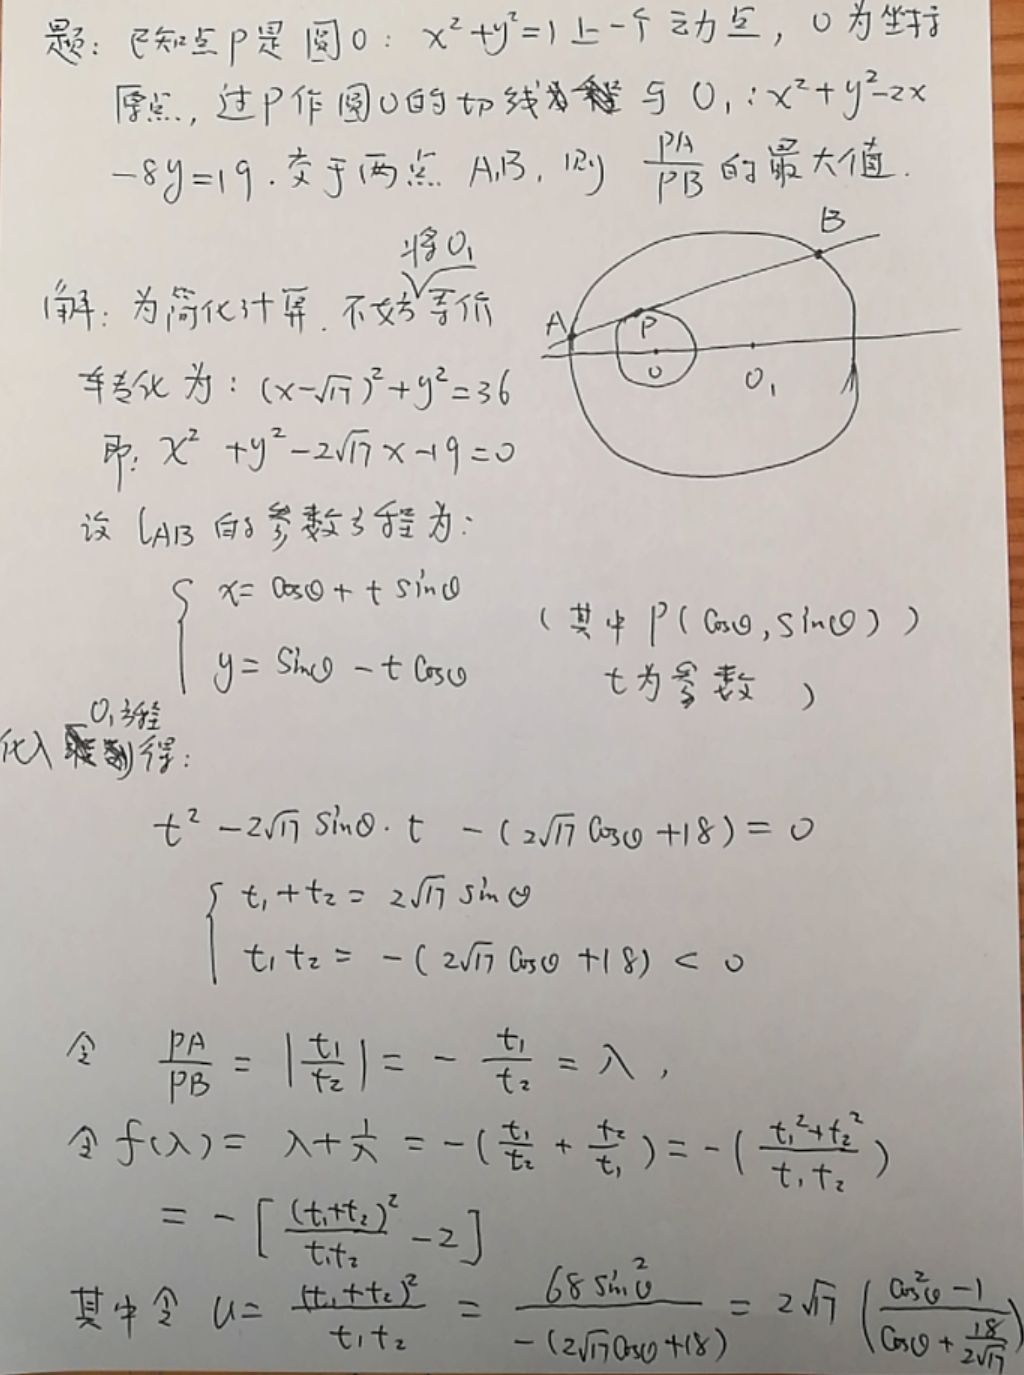 题：已知点P是圆O：x²+y²=1上一个动点，O为坐标
原点，过P作圆O的切线与O₁：x²+y²-2x
-8y=19.交于两点A,B,则 PA/PB 的最大值.
B
A
P
O
O₁
将O₁
解：为简化计算.不妨等价
转化为：(x-√17)²+y²=36
即：x²+y²-2√17x-19=0
设 l_AB 的参数方程为：
x=cosθ+t sinθ
y=sinθ-t cosθ
(其中P(cosθ,sinθ))
t为参数 )
O₁方程
代入 得：
t²-2√17 sinθ·t -(2√17 cosθ+18)=0
t₁+t₂=2√17 sinθ
t₁t₂=-(2√17 cosθ+18)<0
令 PA/PB=|t₁/t₂|=-t₁/t₂=λ,
令f(λ)=λ+1/λ=-(t₁/t₂+t₂/t₁)=-((t₁²+t₂²)/(t₁t₂))
=-[(t₁+t₂)²/(t₁t₂)-2]
其中令 u=(t₁+t₂)²/(t₁t₂)=68sin²θ/(-(2√17cosθ+18))=2√17((cos²θ-1)/(cosθ+18/(2√17)))